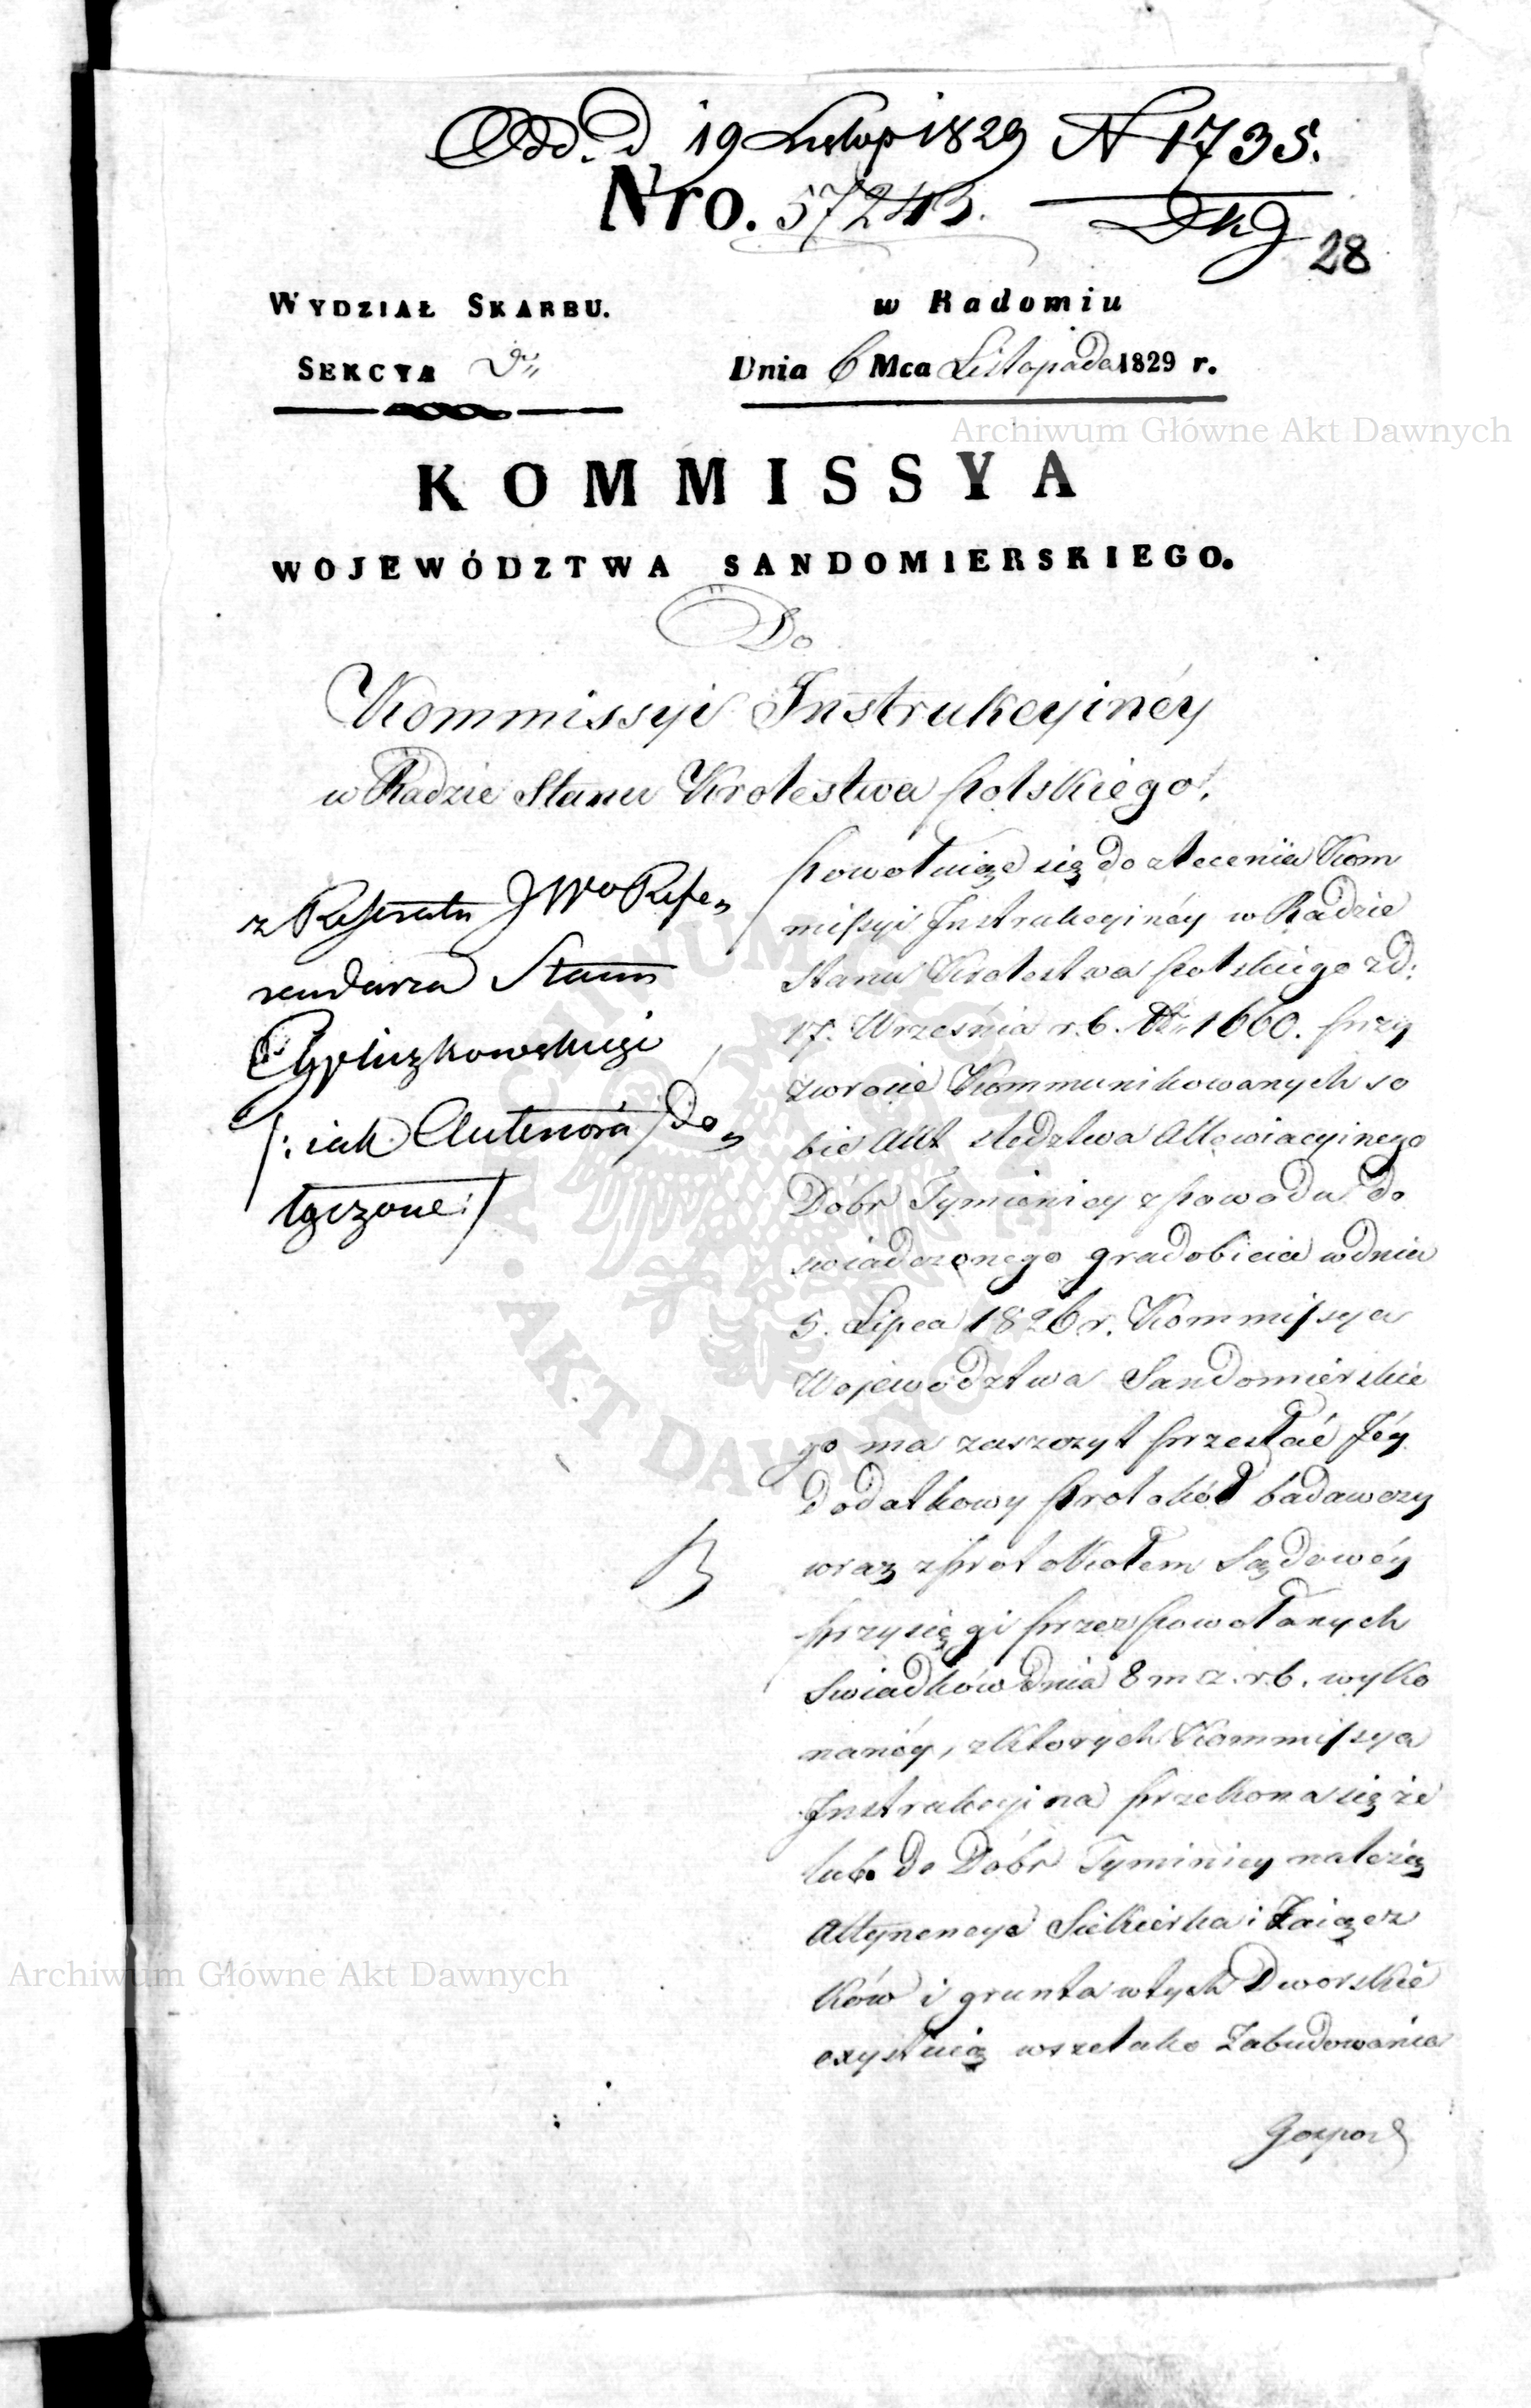 Odd. d 19 Listop 1829 N 1735.
Nro. 57243.
28
WYDZIAŁ SKARBU.
w Radomiu
SEKCYA
Dnia 6 Mca Listopada 1829 r.
Archiwum Główne Akt Dawnych
KOMMISSYA
WOJEWÓDZTWA SANDOMIERSKIEGO.
Do
Kommissyi Instrukcyinéy
w Radzie Stanu Krolestwa Polskiego.
z Referatu JWo Refe„
rendarza Stanu
/: iak Antériora do„
łączone :/
Powołuiąc się do zlecenia Kom
missyi Instrukcyinéy w Radzie
Stanu Krolestwa Polskiego z d:
17. Września r. b. Nr 1660. przy
zwrocie Kommunikowanych so
bie Akt sledztwa Allewiacyinego
Dóbr Tymienicy z powodu do
swiadczonego gradobicia w dniu
5. Lipca 1826 r. Kommissya
Województwa Sandomierskie
go ma zaszczyt przesłać Jéy
dodatkowy Protokół badawczy
wraz z Protokołem Sądowéy
przysięgi przez powołanych
Swiadków dnia 8 m z. r. b. wyko
nanéy, z ktorych Kommissya
Instrukcyina przekona się że
lubo do Dóbr Tyminicy należą
Attynencye Siekierka i Zaiącz
ków i grunta w tych Dworskie
exystuią wszelako Zabudowania
Gospod
Archiwum Główne Akt Dawnych
ARCHIWUM GŁÓWNE AKT DAWNYCH